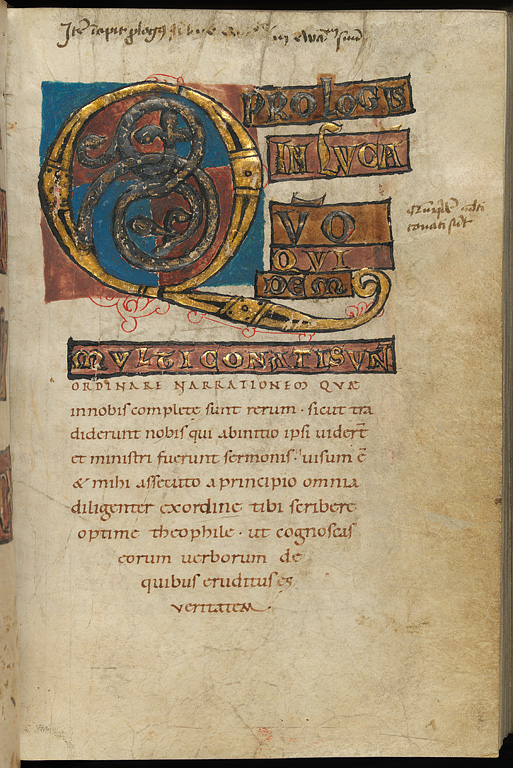 Ite incipit plogus
in eva sim
PROLOGUS
IN LUCA
Q
VO
QUI
DEM
MULTI CONATI SUN
ORDINARE NARRATIONEM QUAE
innobis complete sunt rerum · sicut tra
diderunt nobis qui abinitio ipsi uider̄t
et ministri fuerunt sermonis · uisum ē
& mihi assecuto a principio omnia
diligenter exordine tibi scribere
optime theophile · ut cognoscas
eorum uerborum de
quibus eruditus es
veritatem.
conati sūt